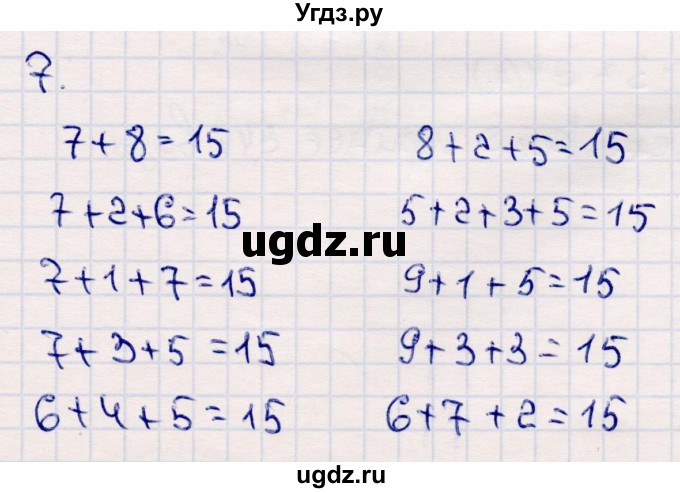 Угдз.ру
7.
7+8=15
8+2+5=15
7+2+6=15
5+2+3+5=15
ugdz.ru
7+1+7=15
9+1+5=15
7+3+5=15
9+3+3=15
6+4+5=15
6+7+2=15
ugdz.ru